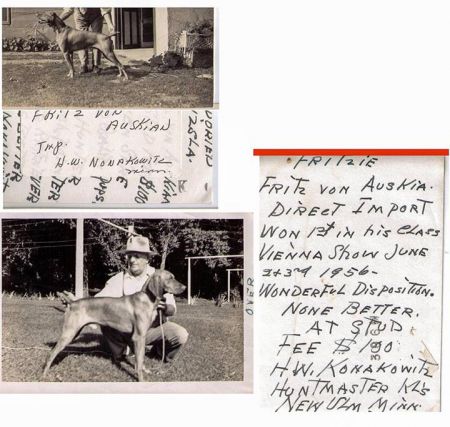 FRITZ VON
AUSKIAN
Imp.
H.W. NONAKOWITZ
minn.
FRITZIE
FRITZ VON AUSKIA.
DIRECT IMPORT
WON 1st in his CLASS
VIENNA SHOW JUNE
2+3rd 1956-
WONDERFUL DISPOSITION.
NONE BETTER.
AT STUD
FEE $100
H.W. KONAKOWITZ
HUNTMASTER KL's
NEW ULM MINN.